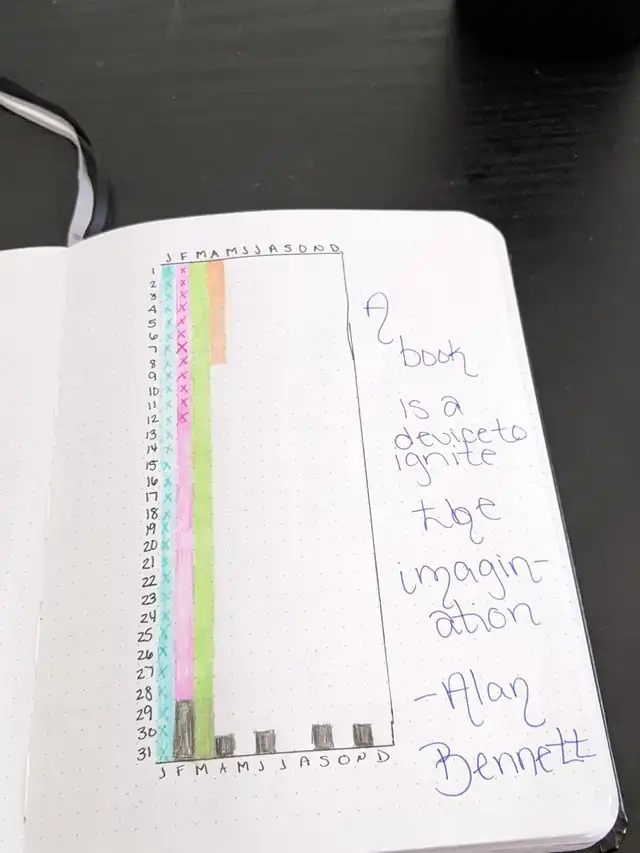 J F M A M J J A S O N D
1
2
3
4
5
6
7
8
9
10
11
12
13
14
15
16
17
18
19
20
21
22
23
24
25
26
27
28
29
30
31
J F M A M J J A S O N D
A
book
is a
device to
ignite
the
imagin-
ation
-Alan
Bennett